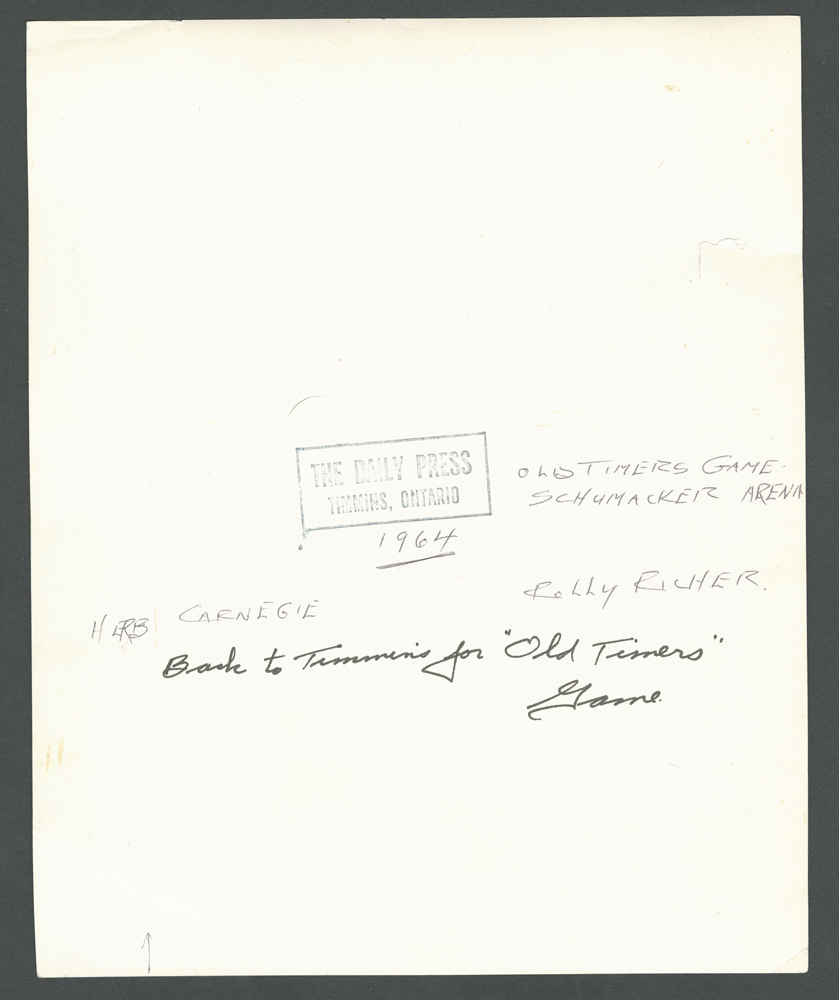 THE DAILY PRESS
TIMMINS, ONTARIO
1964
OLD TIMERS GAME.
SCHUMACKER ARENA
ROLLY RICHER.
HERB CARNEGIE
Back to Timmins for "Old Timers"
Game.